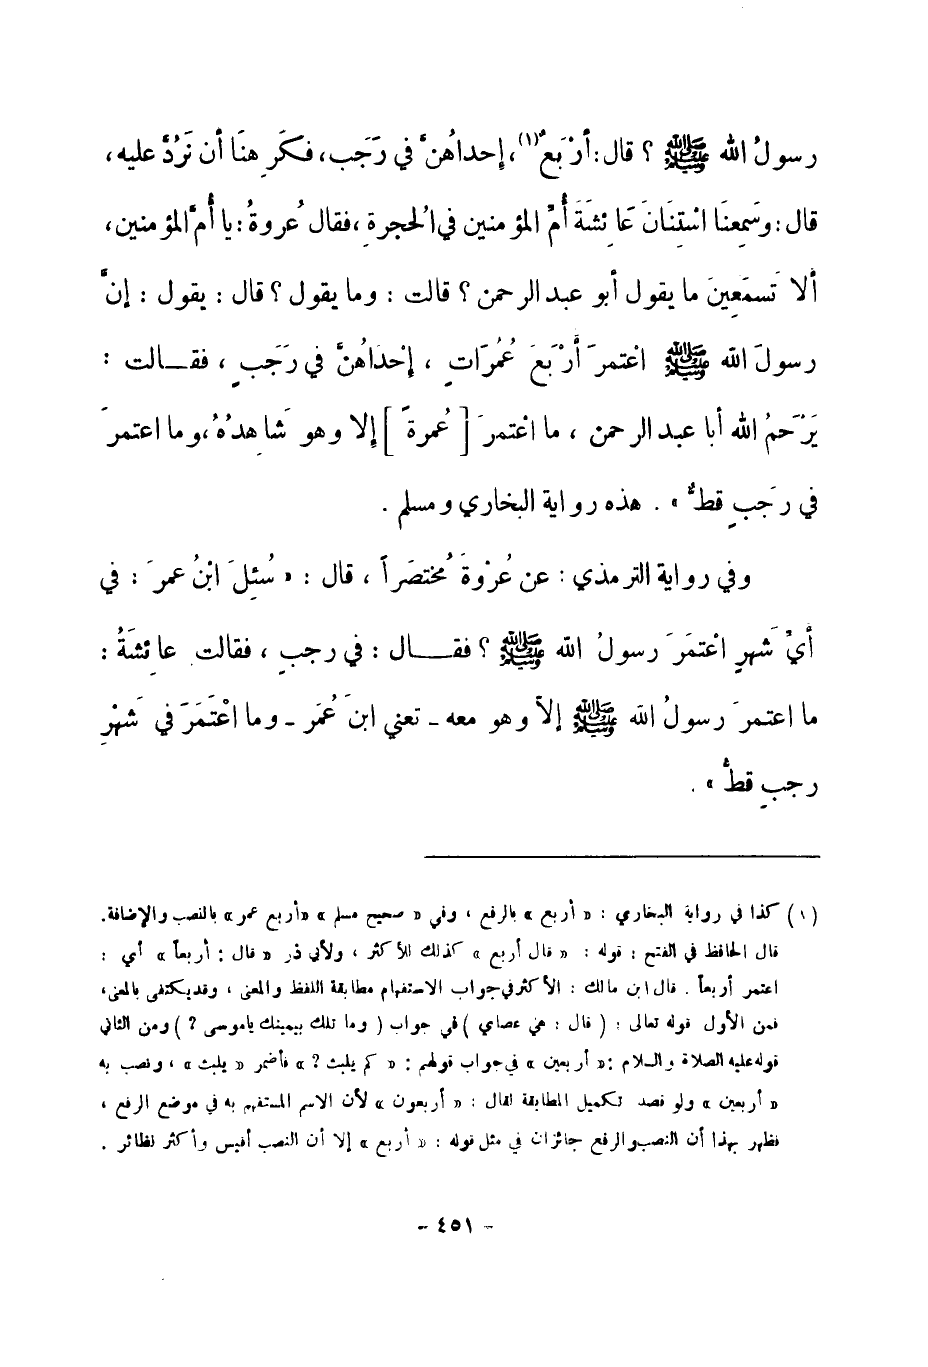 رسولُ الله ﷺ ؟ قال: أرْبَعٌ(١)، إحداهُنَّ في رَجَب، فكَرِهنَا أن نَرُدَّ عليه،
قال: وسَمِعنَا اسْتِنَانَ عَائِشَةَ أُمِّ المؤمنين في الحجرةِ، فقال عُروةُ: يا أُمَّ المؤمنين،
ألا تَسمَعِينَ ما يقول أبو عبد الرحمن ؟ قالت : وما يقول ؟ قال : يقول : إنَّ
رسولَ الله ﷺ اعْتمرَ أرْبَعَ عُمُرَاتٍ ، إحْدَاهُنَّ في رَجَبٍ ، فقــالت :
يَرْحَمُ الله أبا عبد الرحمن ، ما اعْتمرَ [ عُمرةً ] إلا وهو شَاهِدُهُ، وما اعتمرَ
في رجَبٍ قطُّ » . هذه رواية البخاري ومسلم .
وفي رواية الترمذي : عن عُرْوةَ مُختصَراً ، قال : « سُئِلَ ابْنُ عمرَ : في
أيِّ شَهرٍ اعْتمَرَ رسولُ الله ﷺ ؟ فقـــال : في رجبٍ ، فقالت عائشَةُ :
ما اعتمرَ رسولُ الله ﷺ إلاَّ وهو معه ـ تعني ابنَ عُمَر ـ وما اعْتَمَرَ في شَهْرِ
رجبٍ قطُّ » .
(١) كذا في رواية البخاري : « أربع » بالرفع ، وفي « صحيح مسلم » «أربع عمر» بالنصب والإضافة.
قال الحافظ في الفتح : قوله : « قال أربع » كذلك للأكثر ، ولأبي ذر « قال : أربعاً » أي :
اعتمر أربعاً . قال ابن مالك : الأكثر في جواب الاستفهام مطابقة اللفظ والمعنى ، وقد يكتفى بالمعنى،
فمن الأول قوله تعالى : ( قال : هي عصاي ) في جواب ( وما تلك بيمينك يا موسى ؟ ) ومن الثاني
قوله عليه الصلاة والسلام : « أربعين » في جواب قولهم : « كم يلبث ؟ » فأضمر « يلبث » ، ونصب به
« أربعين » ولو قصد تكميل المطابقة لقال : « أربعون » لأن الاسم المستفهم به في موضع الرفع ،
فظهر بهذا أن النصب والرفع جائزان في مثل قوله : « أربع » إلا أن النصب أقيس وأكثر نظائر .
- ٤٥١ -